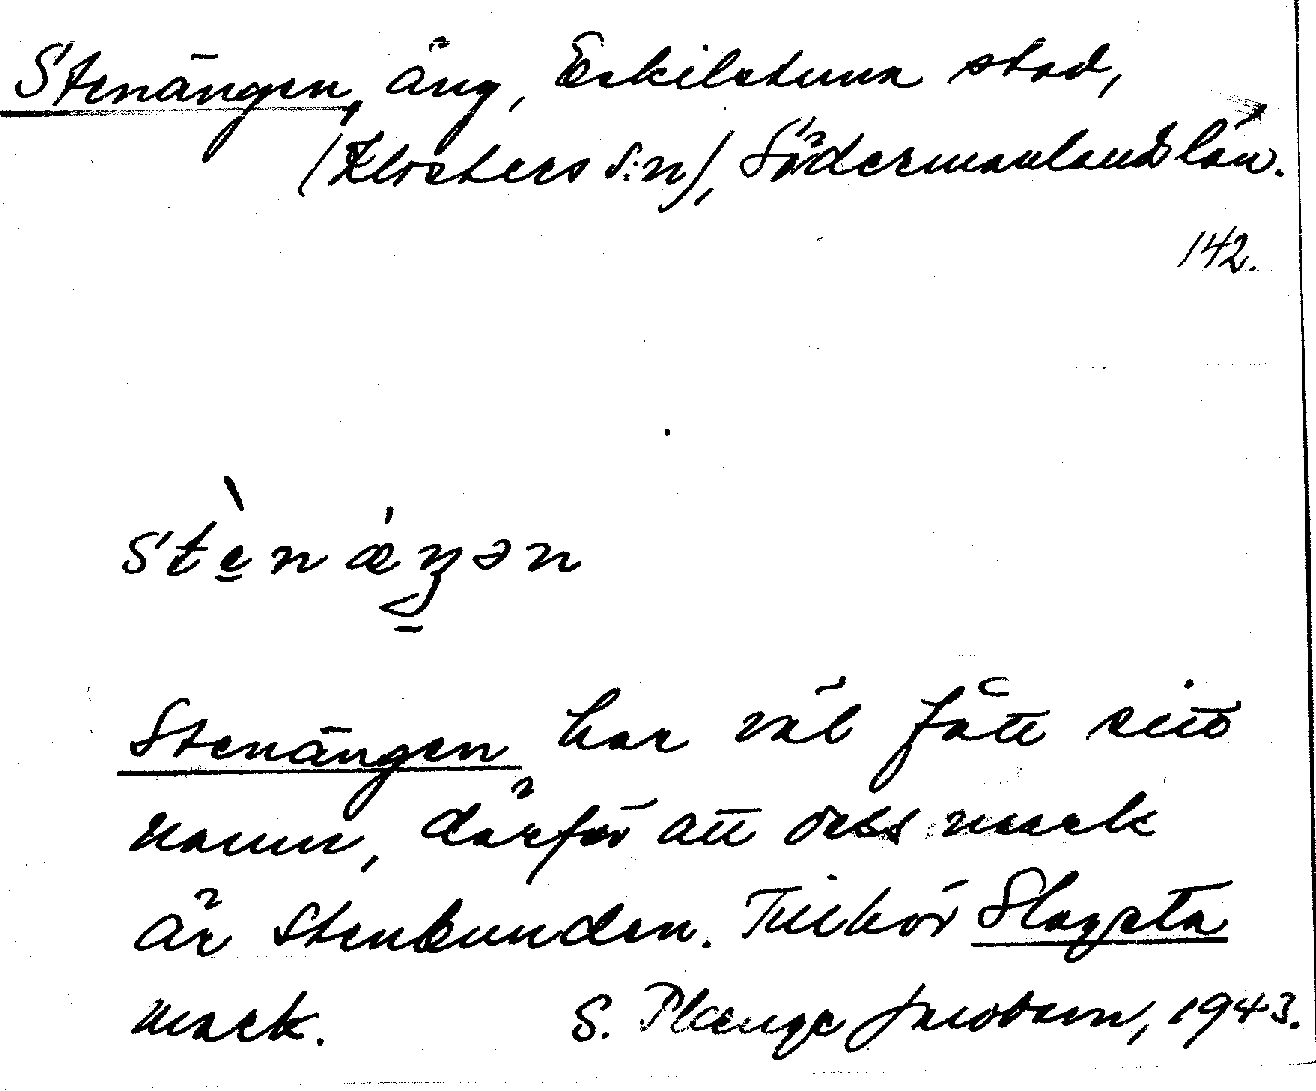 Stenängen, äng, Eskilstuna stad,
(Klosters s:n), Södermanlands län.
142.
Stenängen har väl fått sitt
namn, därför att dess mark
är stenbunden. Tillhör Slagsta
mark. S. Plænge Jacobson, 1943.